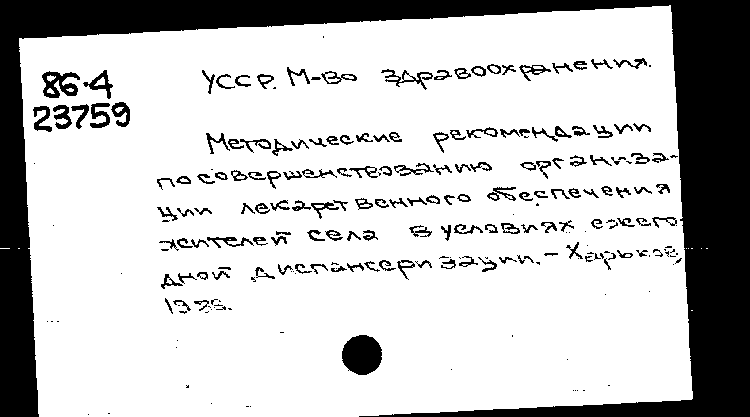 86-4
23759
УССР. М-во здравоохранения.
Методические рекомендации
по совершенствованию организа-
ции лекарственного обеспечения
жителей села в условиях ежего-
дной диспансеризации. - Харьков,